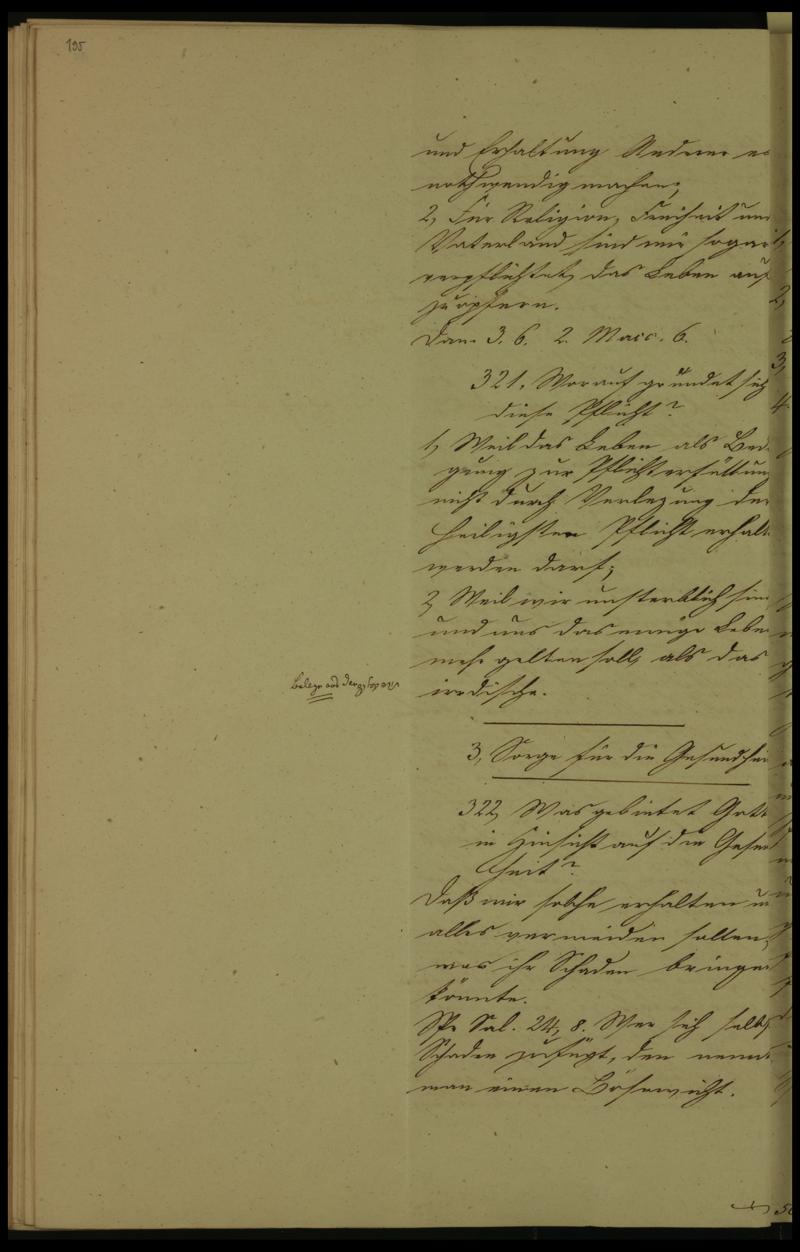 195
und Erhaltung Anderer es
nothwendig machen;
2, Für Religion, Freiheit und
Vaterland sind wir sogar
verpflichtet, das Leben auf
zu opfern.
Dan. 3. 6. 2. Macc. 6.
321. Worauf gründet sich
diese Pflicht?
1, Weil das Leben als Bed
gung zur Pflichterfüllung
nicht durch Verlezung der
heiligsten Pflicht erhalt
werden darf;
2, Weil wir unsterblich sind
und uns das ewige Leben
mehr gelten soll, als das
irrdische.
Belege aus der
3, Sorge für die Gesundhei
322, Was gebietet Gott
in Hinsicht auf die Gesun
heit?
Daß wir solche erhalten u
alles vermeiden sollen,
was ihr Schaden bringen
könnte.
Spr. Sal. 24, 8. Wer sich selbst
Schaden zufügt, den nennt
man einen Bösewicht.